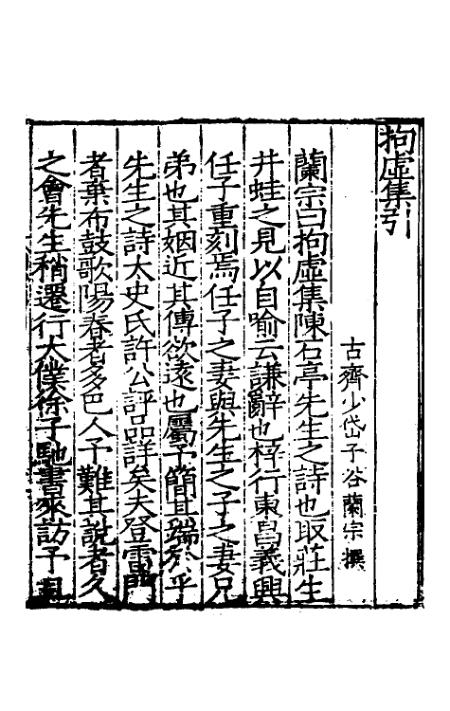 拘虛集引
古齊少岱子谷蘭宗撰
蘭宗曰拘虛集陳石亭先生之詩也取莊生
井蛙之見以自喻云謙辭也梓行東昌義興
任子重刻焉任子之妻與先生之子之妻兄
弟也其姻近其傳欲遠也屬予簡其端於乎
先生之詩太史氏許公評品詳矣夫登雷門
者棄布鼓歌陽春者多巴人予難其說者久
之會先生稍遷行太僕徐子馳書來訪予